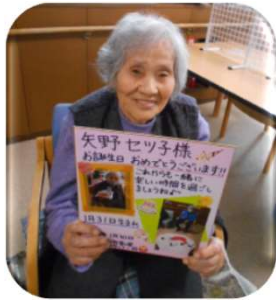 矢野 セツ子様
お誕生日 おめでとうございます!!
これからも一緒に
楽しい時間を過ごし
ましょうね♪
1月31日生まれ